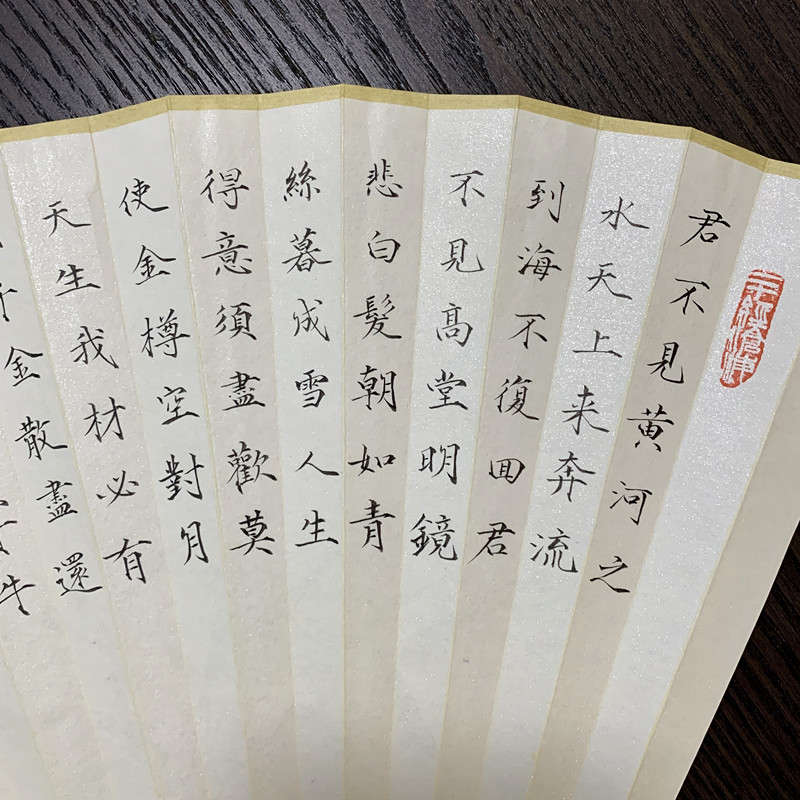 君不見黄河之
水天上来奔流
到海不復回君
不見高堂明鏡
悲白髮朝如青
絲暮成雪人生
得意須盡歡莫
使金樽空對月
天生我材必有
千金散盡還
牛